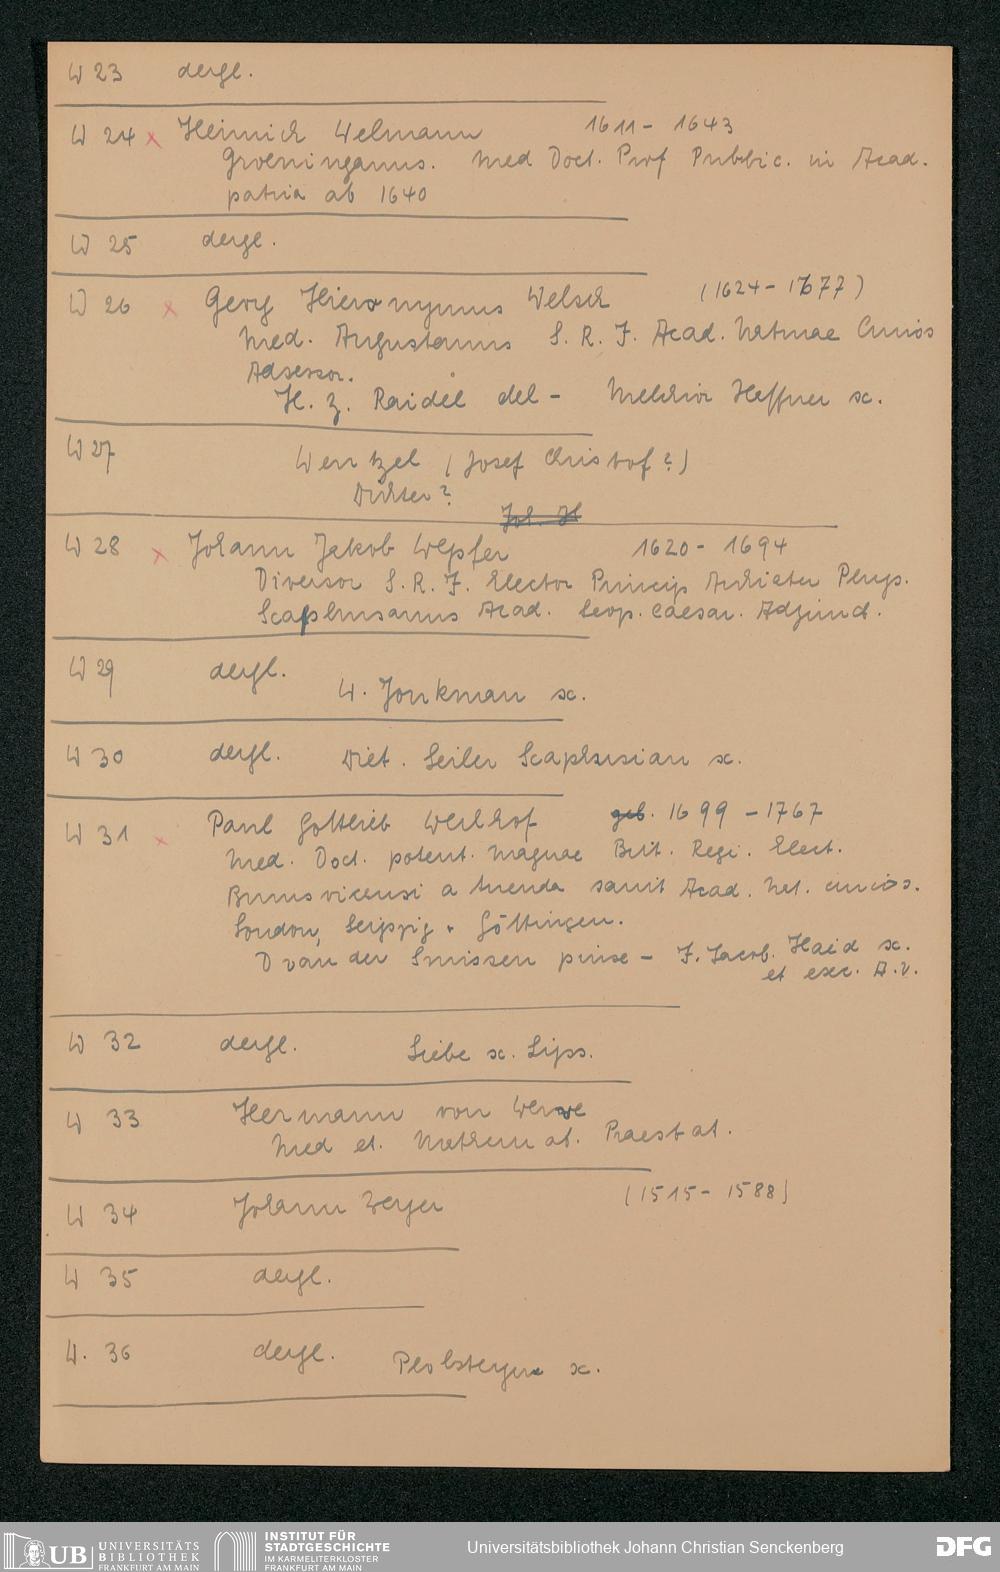 W 23 dergl.
W 24 x Heinrich Welmann 1611 - 1643
Groeninganus. Med Doct. Prof Public. in Acad.
patria ab 1640
W 25 dergl.
W 26 x Georg Hieronymus Welsch (1624 - 1677)
Med. Augustanus S. R. J. Acad. Naturae Curios
Adsessor.
H. z. Raidel del - Melchior Heffner sc.
W 27 Wentzel (Josef Christof?)
Dichter?
Joh. H
W 28 x Johann Jakob Wepfer 1620 - 1694
Diversor S. R. J. Elector Princip Archiater Phys.
Scaphusanus Acad. Leop. Caesar. Adjunct.
W 29 dergl.
W. Jonkman sc.
W 30 dergl. Diet. Seiler Scaphusian sc.
W 31 x Paul Gottlieb Werlhof geb. 1699 - 1767
Med. Doct. potent. Magnae Brit. Regi. Elect.
Brunsvicensi a tuenda sanit Acad. Nat. curios.
London, Leipzig. Göttingen.
D van der Smissen pinxe - J. Jacob. Haid sc.
et exc. A.V.
W 32 dergl. Liebe sc. Lips.
W 33 Hermann von Werwe
Med et. Mathemat. Praestat.
W 34 Johann Weyer (1515 - 1588)
W 35 dergl.
W. 36 dergl. sc.
UB UNIVERSITÄTS
BIBLIOTHEK
FRANKFURT AM MAIN
INSTITUT FÜR
STADTGESCHICHTE
IM KARMELITERKLOSTER
FRANKFURT AM MAIN
Universitätsbibliothek Johann Christian Senckenberg
DFG